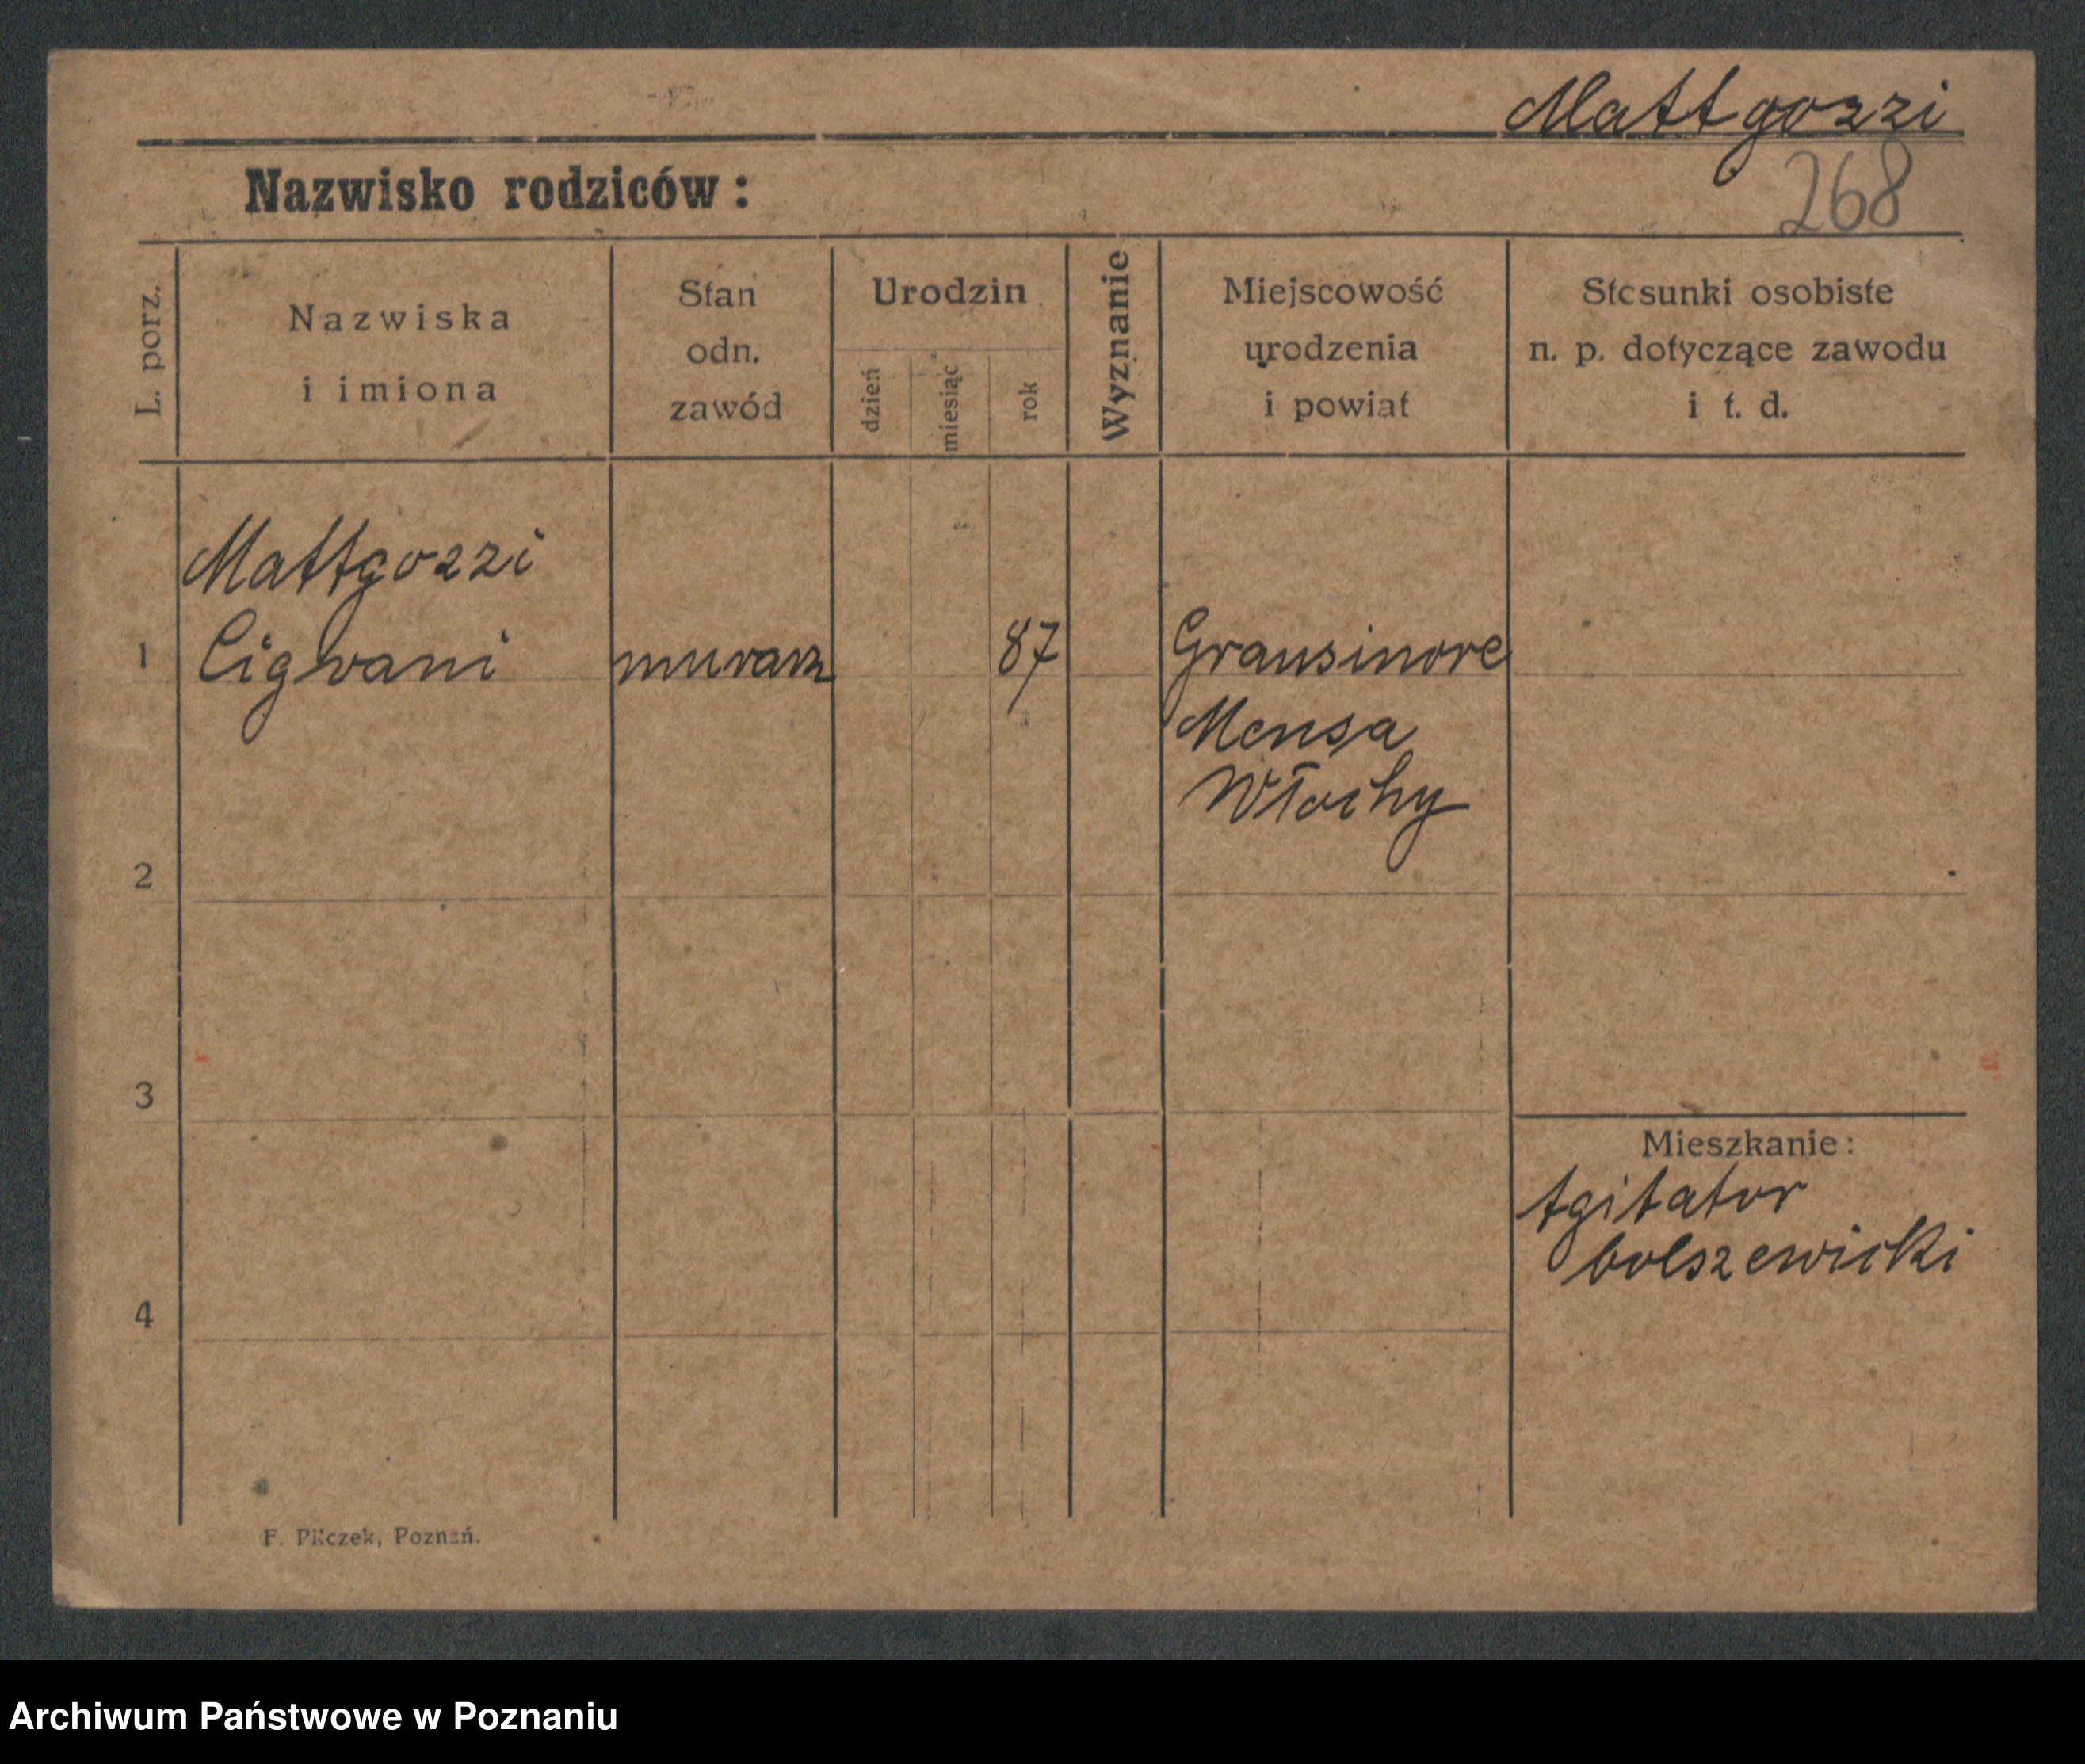 Mattgozzi
268
Nazwisko rodziców :
L. porz.
Nazwiska
i imiona
Stan
odn.
zawód
Urodzin
dzień
miesiąc
rok
Wyznanie
Miejscowość
urodzenia
i powiat
Stosunki osobiste
n. p. dotyczące zawodu
i t. d.
Mattgozzi
1 Cigvani murarz 87 Gransinore
Mensa
Włochy
2
3
Mieszkanie :
Agitator
bolszewicki
4
F. Pilczek, Poznań.
Archiwum Państwowe w Poznaniu